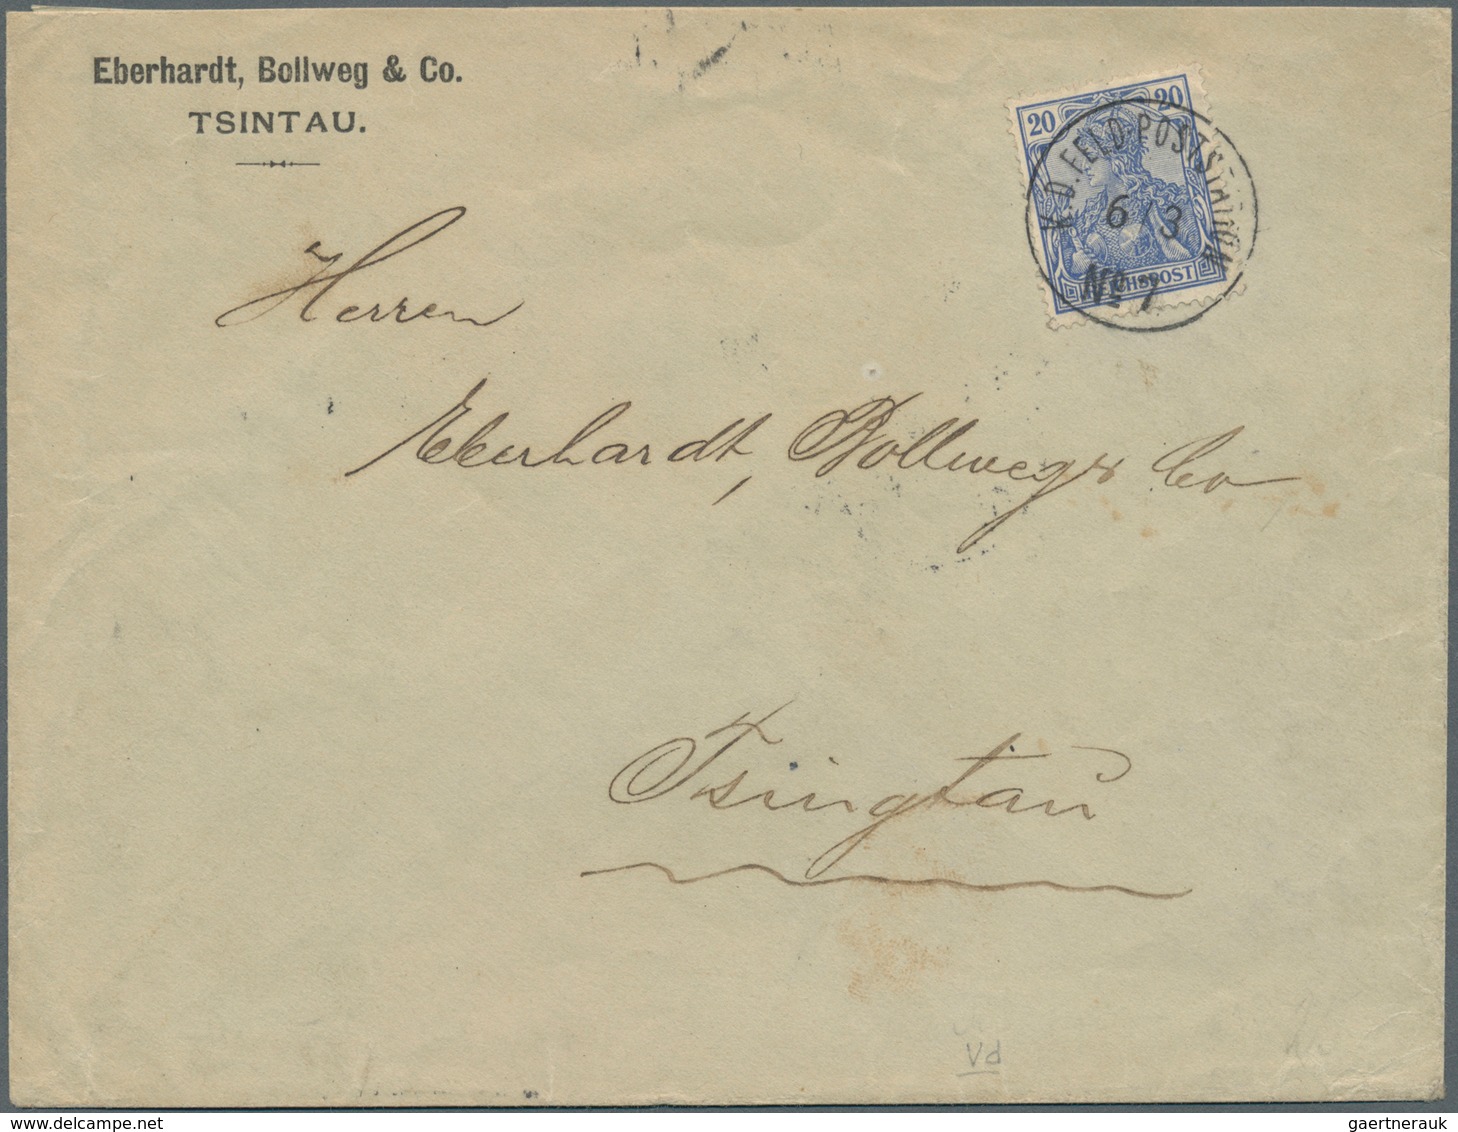 Eberhardt, Bollweg & Co.
TSINTAU.
20 20
K.D. FELD-POSTSTATION
6/3
No 7
REICHSPOST
Herren
Eberhardt, Bollweg & Co
Tsingtau
Vd
gaertnerauk